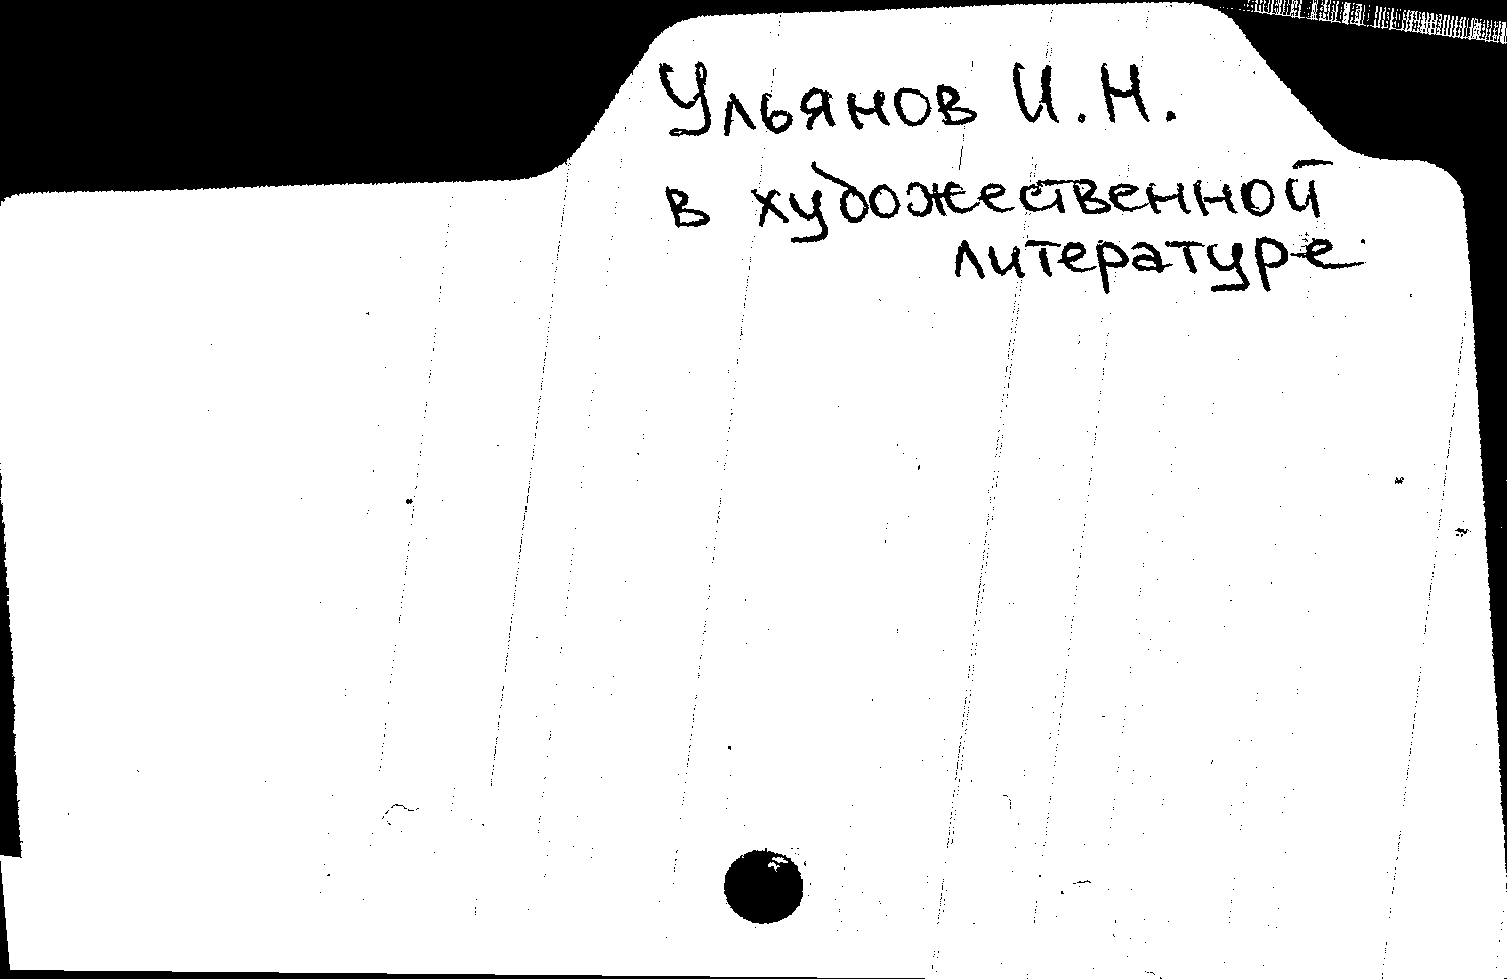 Ульянов И.Н.
в художественной
литературе